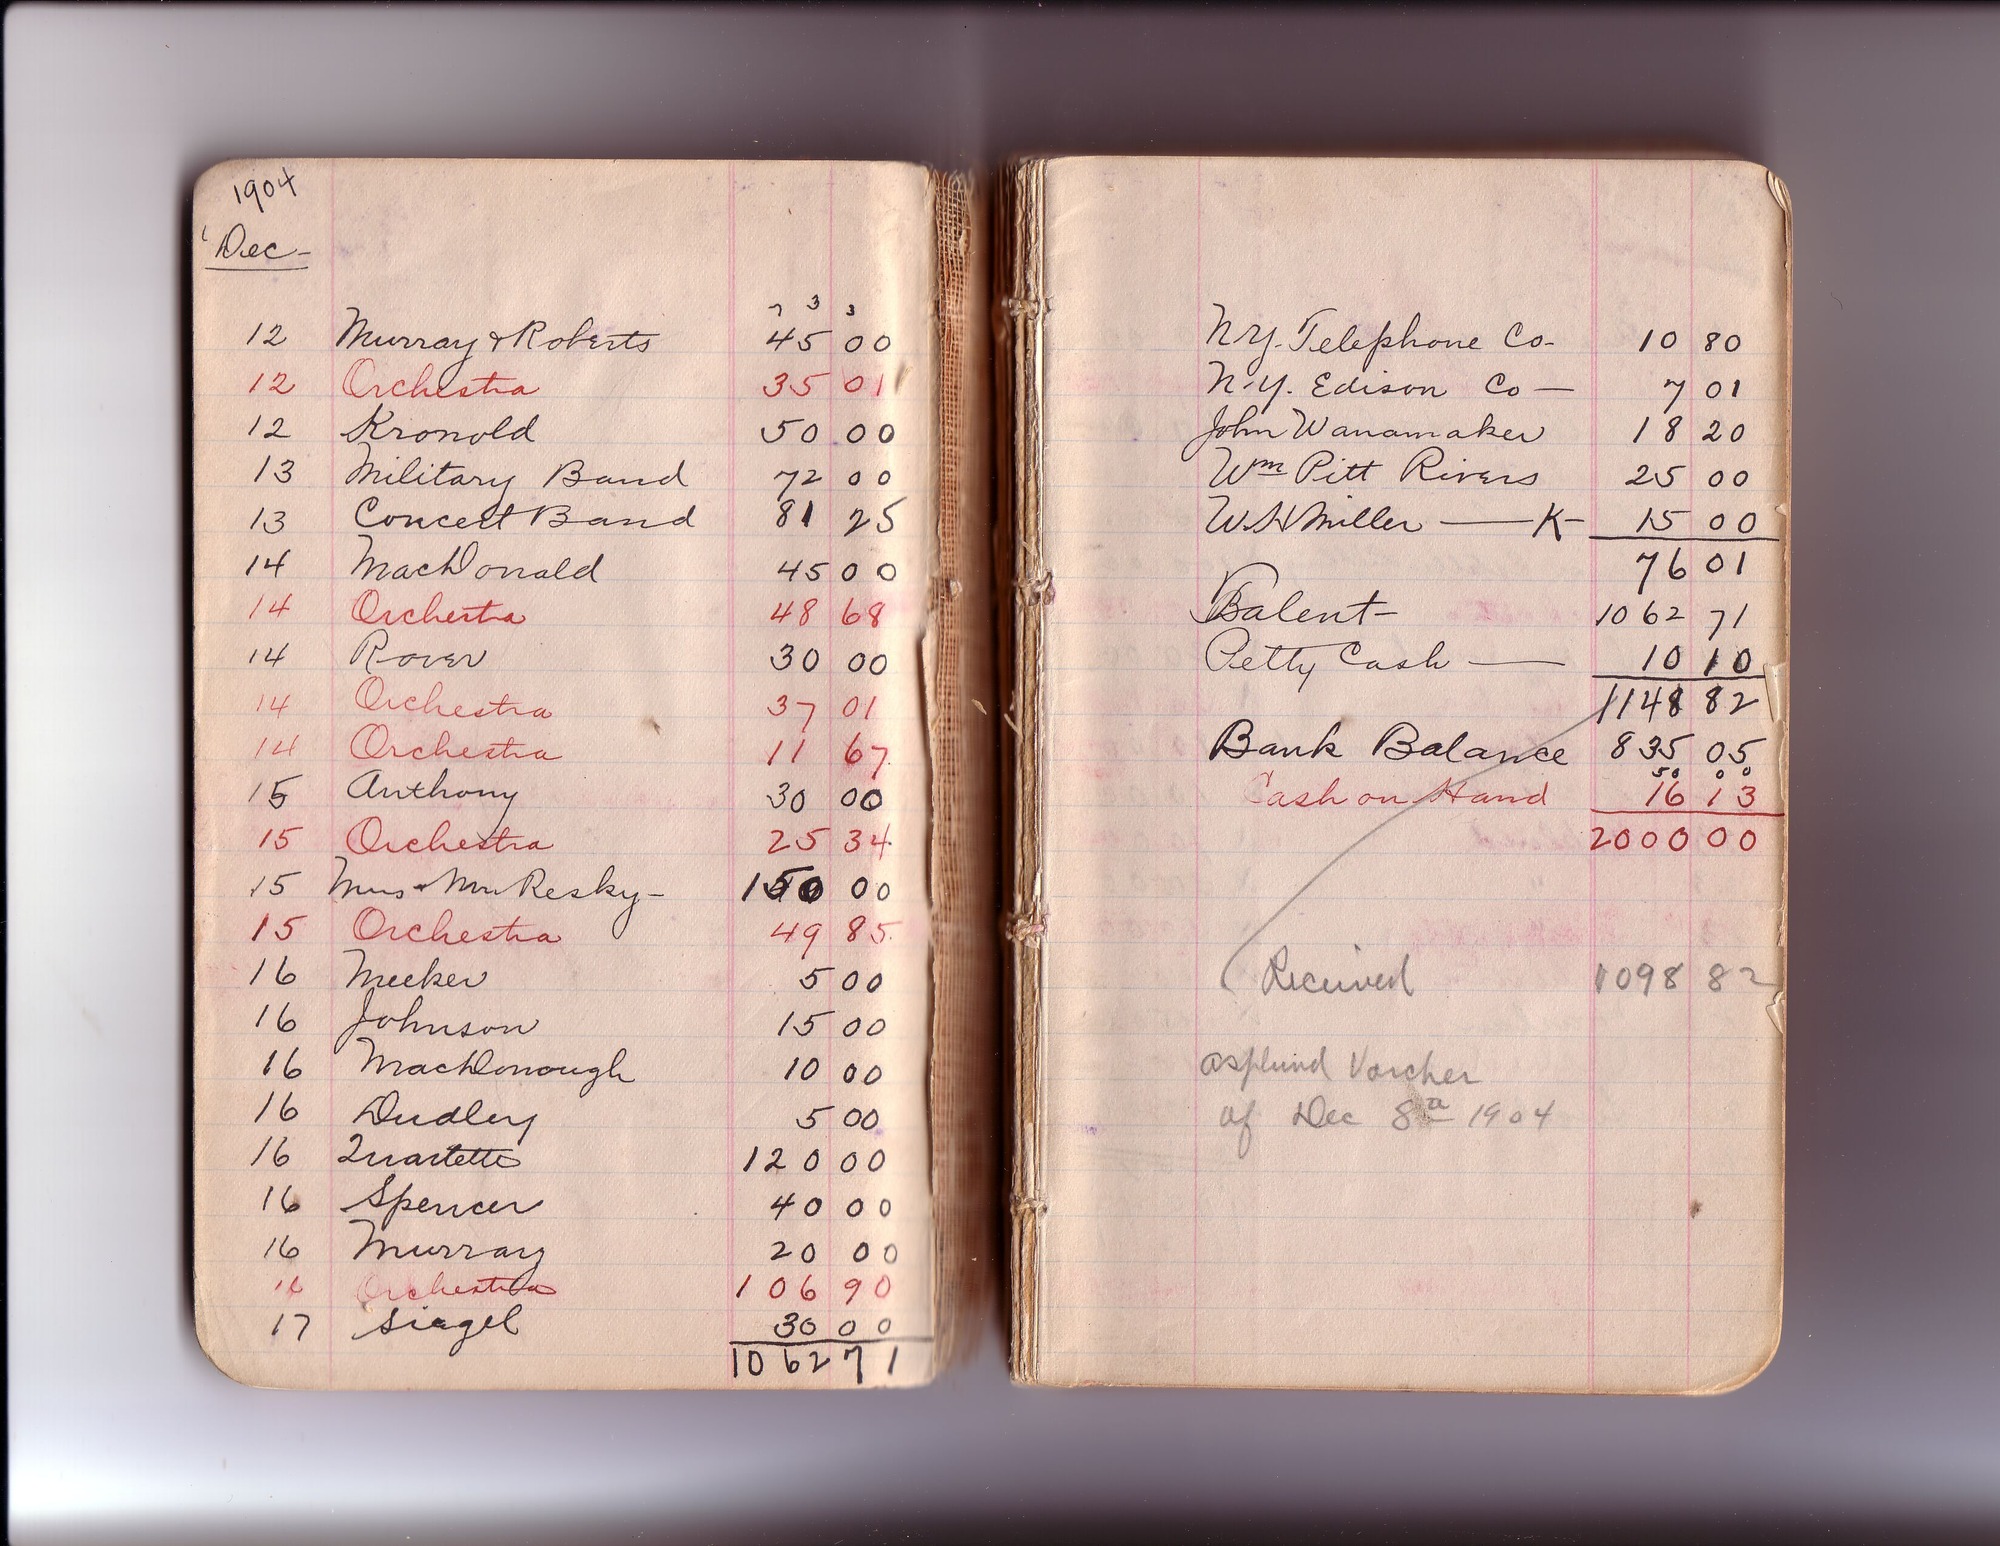 1904
Dec-
7 3 3
12 Murray & Roberts 45 00
12 Orchestra 35 01
12 Kronold 50 00
13 Military Band 72 00
13 Concert Band 81 25
14 MacDonald 45 00
14 Orchestra 48 68
14 Rover 30 00
14 Orchestra 37 01
14 Orchestra 11 67
15 Anthony 30 00
15 Orchestra 25 34
15 Mrs & Mr Resky- 150 00
15 Orchestra 49 85
16 Meeker 5 00
16 Johnson 15 00
16 MacDonough 10 00
16 Dudley 5 00
16 Quartette 120 00
16 Spencer 40 00
16 Murray 20 00
16 Orchestra 106 90
17 Siegel 30 00
1062 71
N.Y. Telephone Co- 10 80
N.Y. Edison Co — 7 01
John Wanamaker 18 20
Wm Pitt Rivers 25 00
W.H Miller — K- 15 00
76 01
Talent- 1062 71
Petty Cash — 10 10
1148 82
Bank Balance 835 05
50 0 0
Cash on Hand 16 13
2000 00
Received 1098 82
Asplund Vorcher
of Dec 8 1904